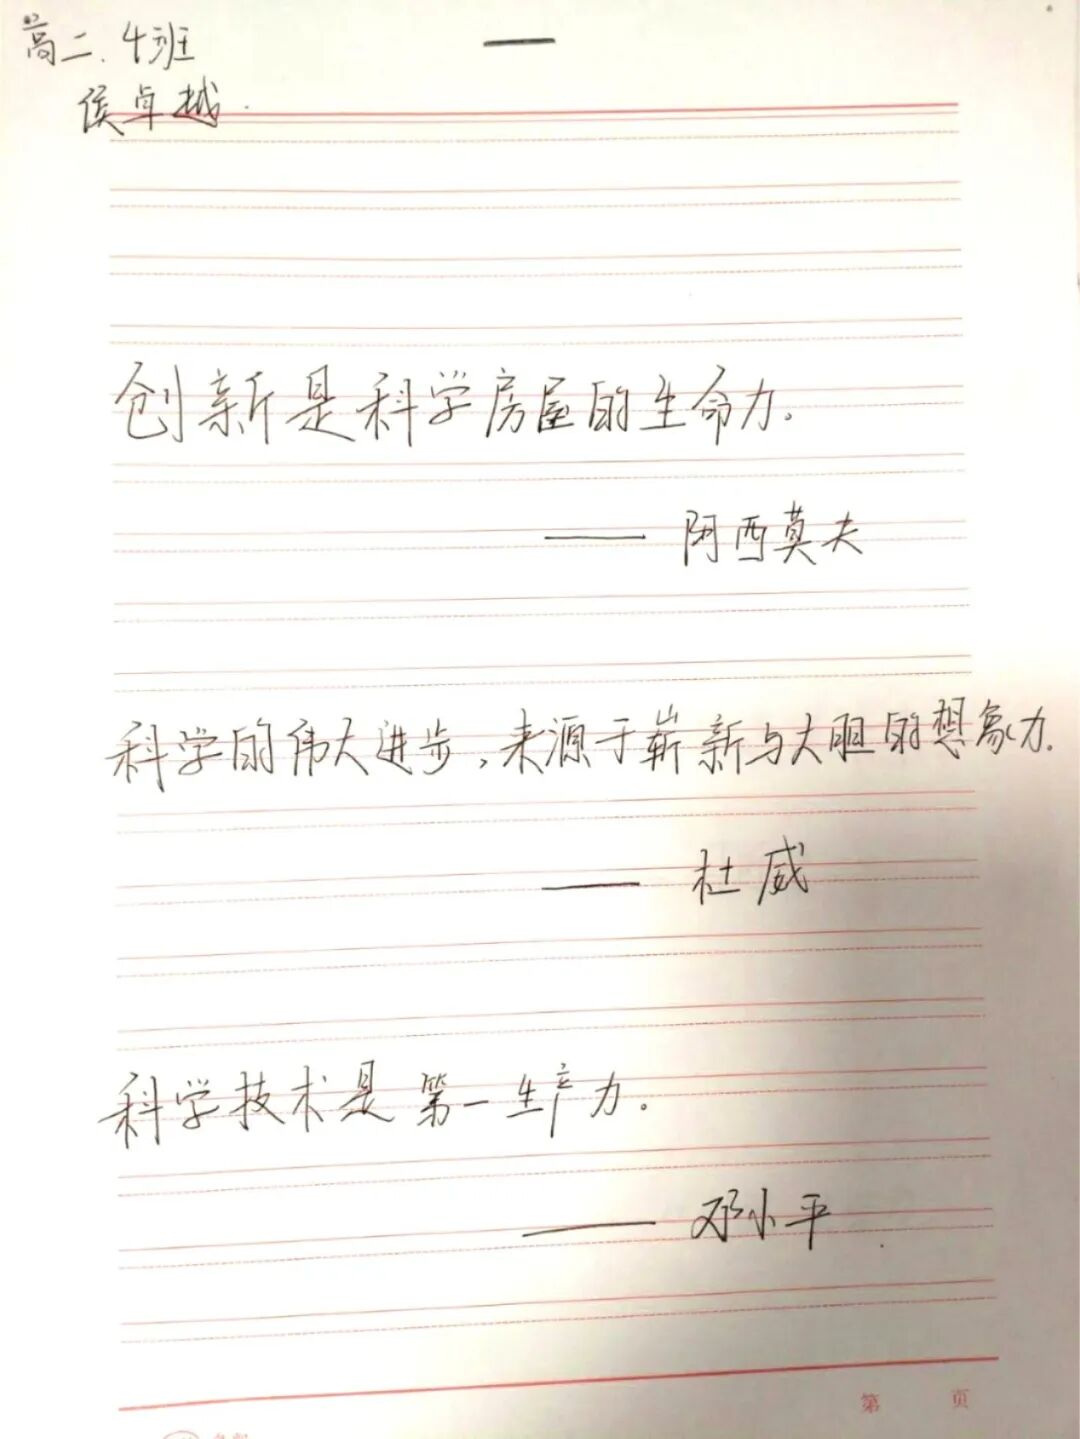 高二.4班
一
侯卓越.
创新是科学房屋的生命力。
——阿西莫夫
科学的伟大进步,来源于崭新与大胆的想象力.
——杜威
科学技术是第一生产力。
——邓小平
第 页